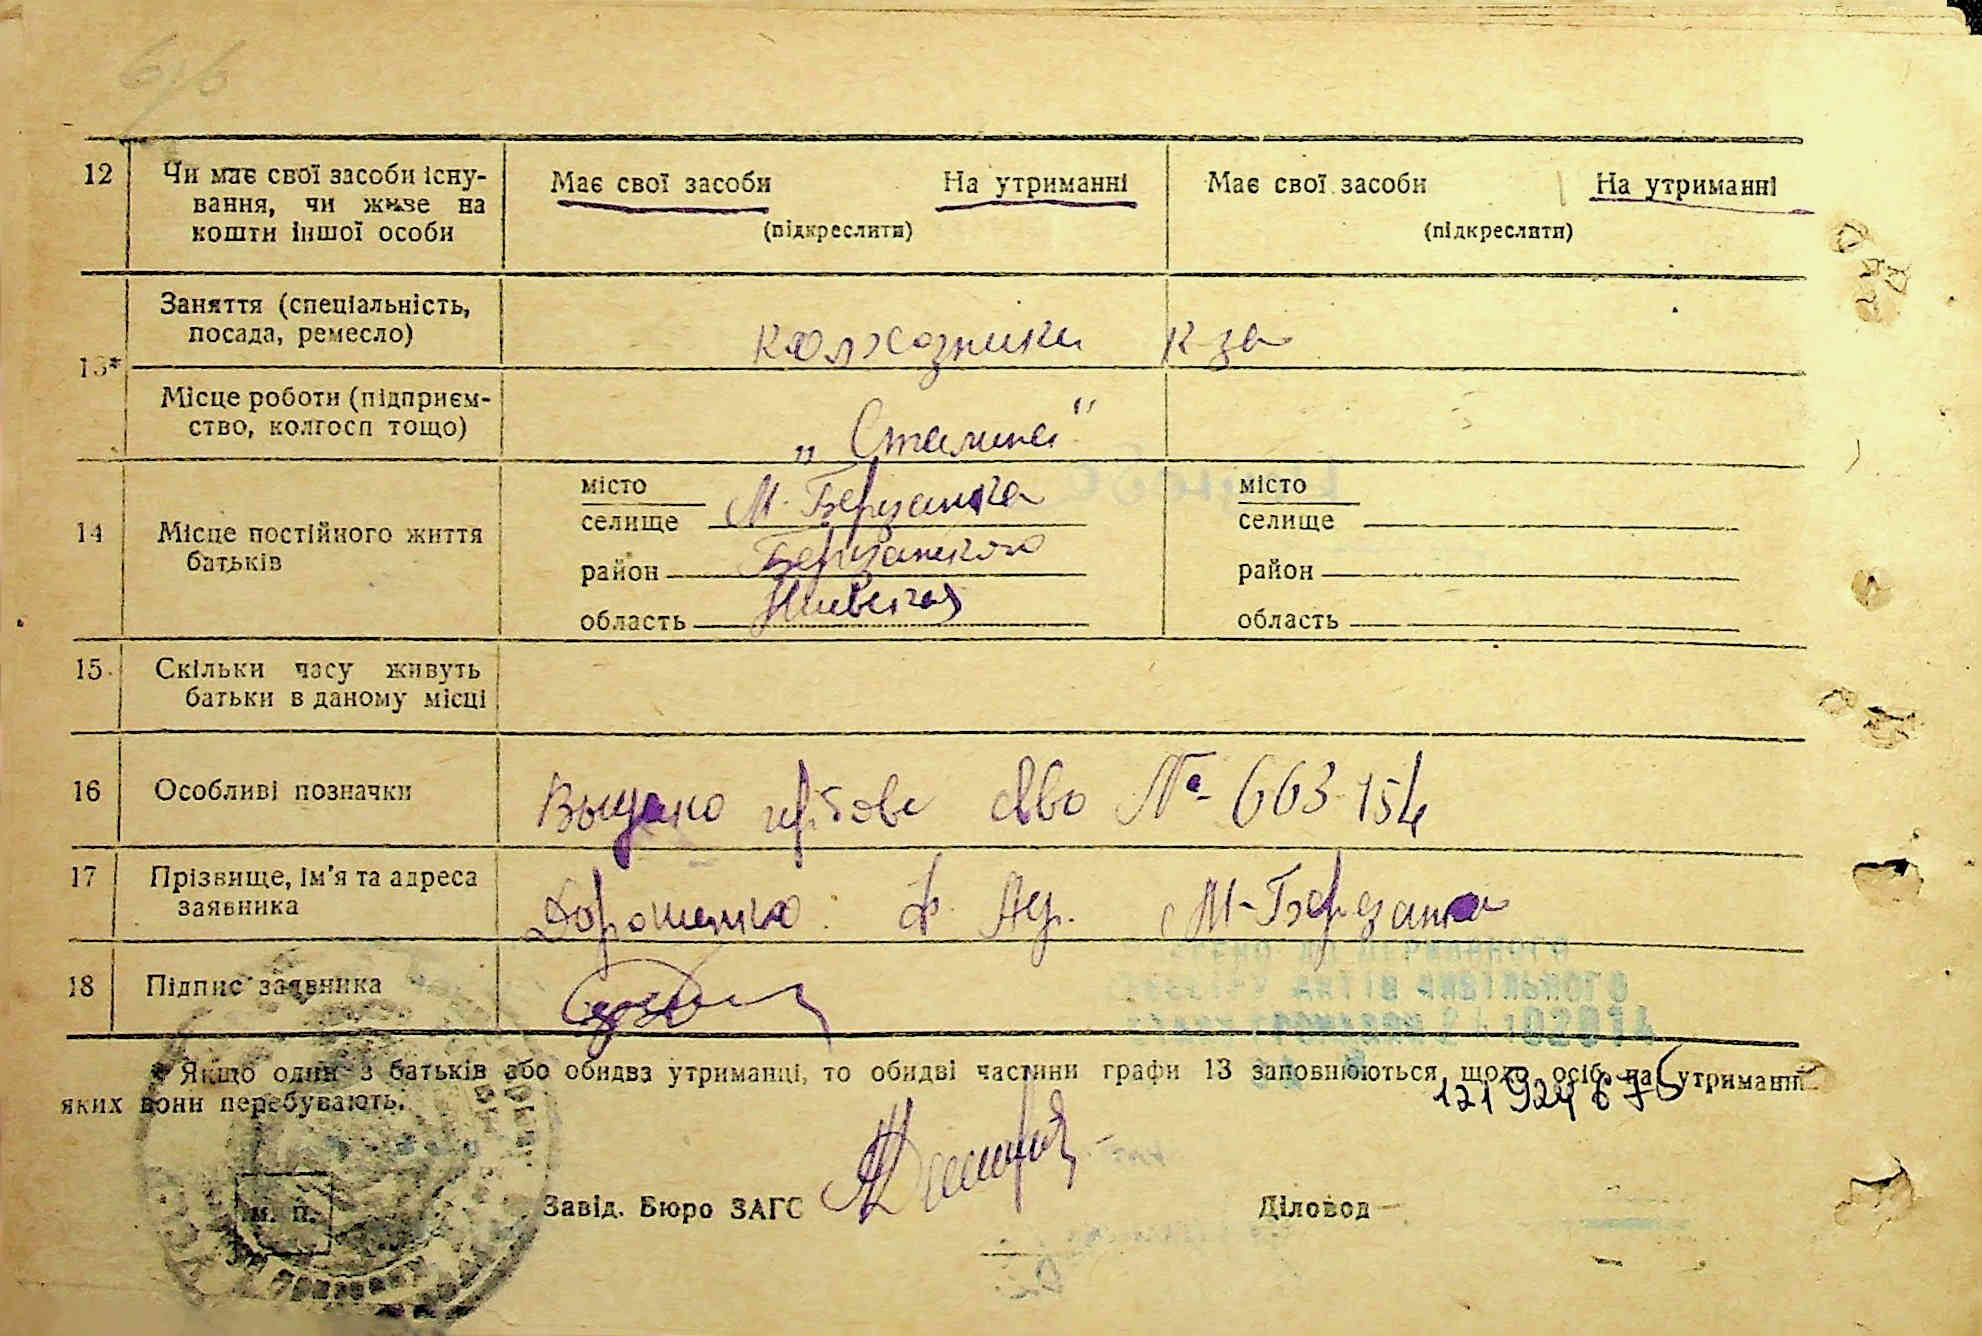 12 Чи має свої засоби існу-
вання, чи живе на
кошти іншої особи
Має свої засоби На утриманні
(підкреслити)
Має свої засоби На утриманні
(підкреслити)
13*
Заняття (спеціальність,
посада, ремесло)
колхозники к-за
Місце роботи (підприєм-
ство, колгосп тощо)
„Сталина“
14 Місце постійного життя
батьків
місто
селище М-Березанка
район Березанского
область
місто
селище
район
область
15 Скільки часу живуть
батьки в даному місці
16 Особливі позначки
Выдано гербове св-во № 663154
17 Прізвище, ім'я та адреса
заявника
Дорошенко М-Березанка
18 Підпис заявника
* Якщо один з батьків або обидва утриманці, то обидві частини графи 13 заповнюються щодо осіб на утриманні
яких вони перебувають.
м. п.
Завід. Бюро ЗАГС
Діловод